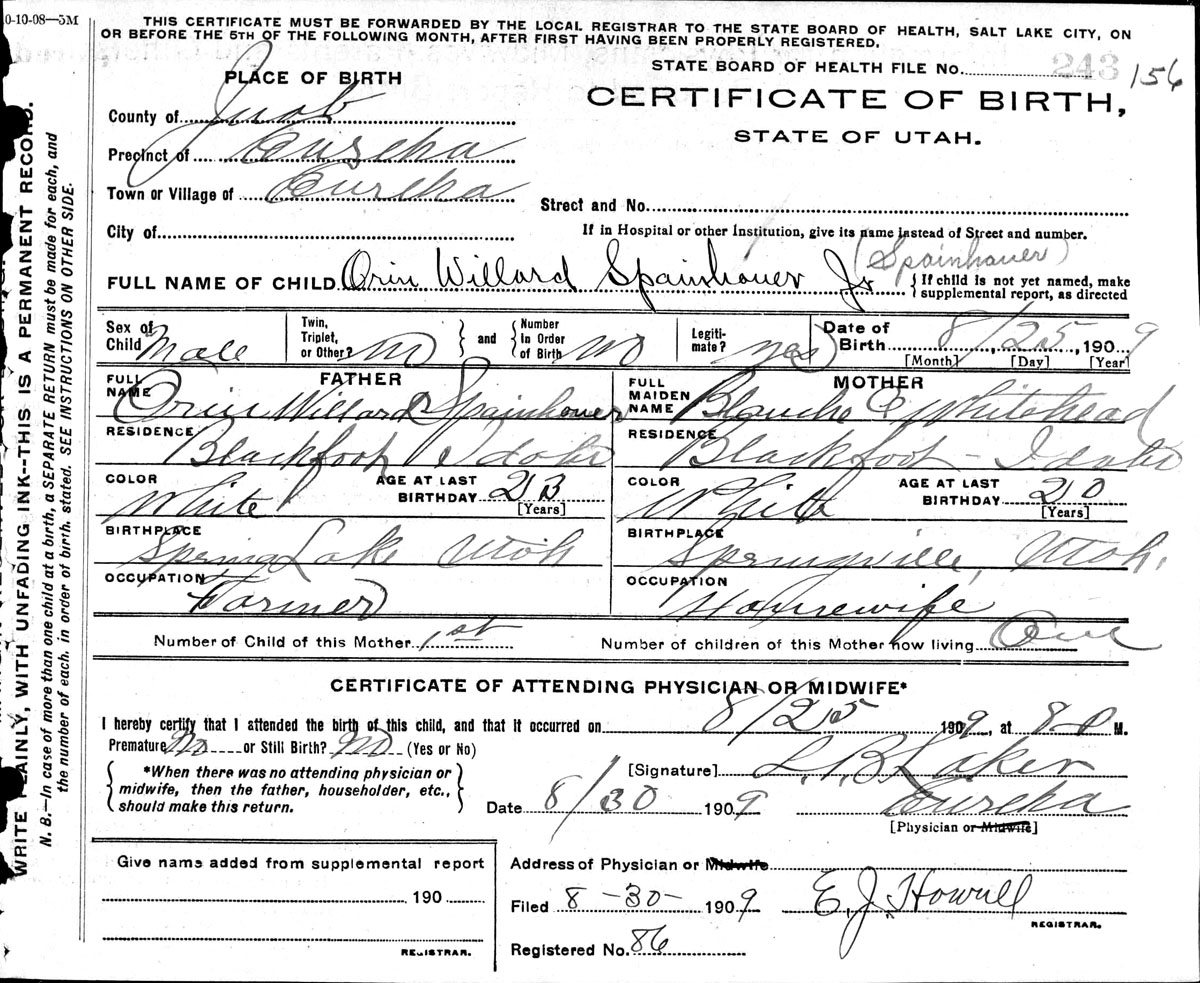 0-10-08—5M
THIS CERTIFICATE MUST BE FORWARDED BY THE LOCAL REGISTRAR TO THE STATE BOARD OF HEALTH, SALT LAKE CITY, ON
OR BEFORE THE 5TH OF THE FOLLOWING MONTH, AFTER FIRST HAVING BEEN PROPERLY REGISTERED.
STATE BOARD OF HEALTH FILE No. 243 156
PLACE OF BIRTH
CERTIFICATE OF BIRTH,
STATE OF UTAH.
County of Juab
Precinct of Eureka
Town or Village of Eureka
Street and No.
City of
If in Hospital or other Institution, give its name instead of Street and number.
(Spainhauer)
FULL NAME OF CHILD Orin Willard Spainhouer Jr { If child is not yet named, make
supplemental report, as directed
Sex of Child Male
Twin, Triplet, or Other? No } and { Number In Order of Birth No
Legiti-mate? yes
Date of Birth 8/25, 1909
[Month] [Day] [Year]
FATHER
FULL NAME Orin Willard Spainhower
RESIDENCE Blackfoot Idaho
COLOR White
AGE AT LAST BIRTHDAY 23 [Years]
BIRTHPLACE Spring Lake Utah
OCCUPATION Farmer
MOTHER
FULL MAIDEN NAME Blanche E Whitehead
RESIDENCE Blackfoot - Idaho
COLOR White
AGE AT LAST BIRTHDAY 20 [Years]
BIRTHPLACE Springville, Utah.
OCCUPATION Housewife
Number of Child of this Mother 1st
Number of children of this Mother now living One
CERTIFICATE OF ATTENDING PHYSICIAN OR MIDWIFE*
I hereby certify that I attended the birth of this child, and that it occurred on 8/25 1909, at 8 P M.
Premature No or Still Birth? No (Yes or No)
{ *When there was no attending physician or
midwife, then the father, householder, etc.,
should make this return. }
[Signature] L.B. Laker
Date 8/30 1909
Eureka
[Physician or Midwife]
Give name added from supplemental report
190
REGISTRAR.
Address of Physician or Midwife
Filed 8-30- 1909
E.J. Howell
REGISTRAR.
Registered No. 86
WRITE PLAINLY, WITH UNFADING INK--THIS IS A PERMANENT RECORD.
N. B.—In case of more than one child at a birth, a SEPARATE RETURN must be made for each, and
the number of each, in order of birth, stated. SEE INSTRUCTIONS ON OTHER SIDE.